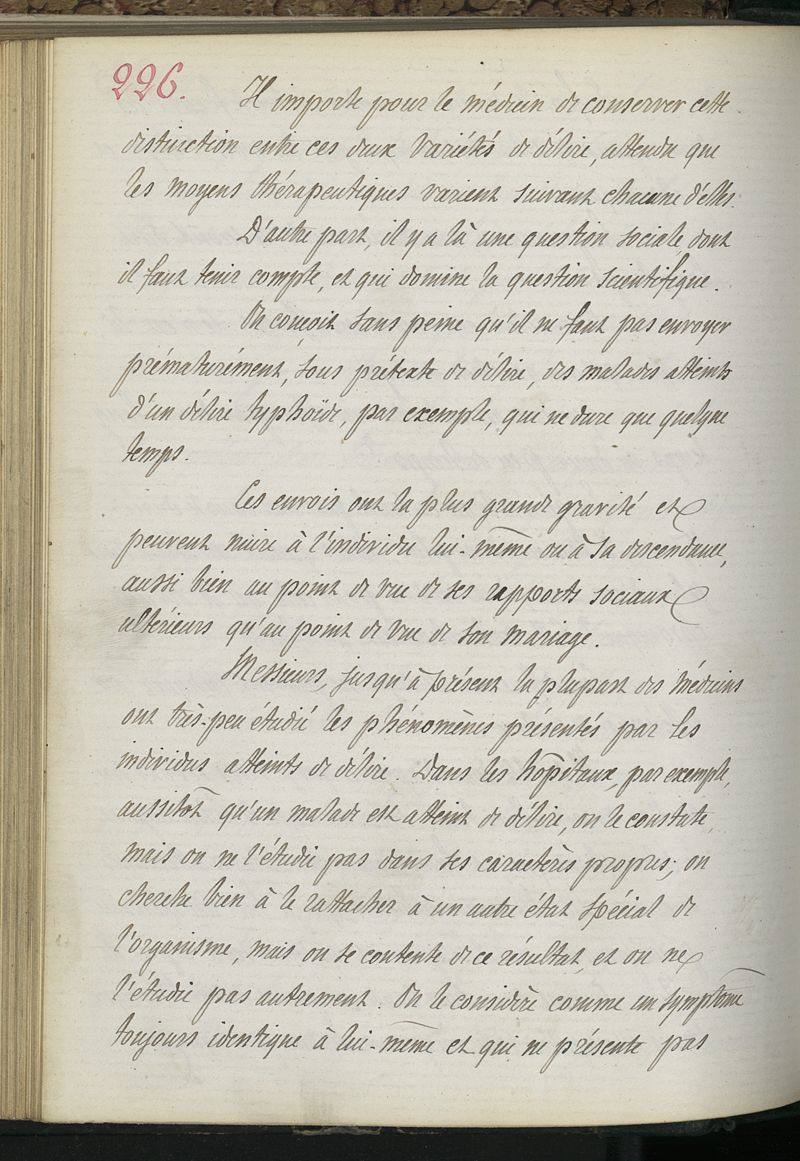 226.
Il importe pour le médecin de conserver cette
distinction entre ces deux variétés de délire, attendu que
les moyens thérapeutiques varient suivant chacune d'elles.
D'autre part, il y a là une question sociale dont
il faut tenir compte, et qui domine la question scientifique.
On conçoit sans peine qu'il ne faut pas envoyer
prématurément, sous prétexte de délire, des malades atteints
d'un délire typhoïde, par exemple, qui ne dure que quelque
temps.
Ces envois ont la plus grande gravité et
peuvent nuire à l'individu lui-même ou à sa descendance,
aussi bien au point de vue de ses rapports sociaux
ultérieurs qu'au point de vue de son mariage.
Messieurs, jusqu'à présent la plupart des médecins
ont très-peu étudié les phénomènes présentés par les
individus atteints de délire. Dans les hôpitaux, par exemple,
aussitôt qu'un malade est atteint de délire, on le constate,
mais on ne l'étudie pas dans ses caractères propres; on
cherche bien à le rattacher à un autre état spécial de
l'organisme, mais on se contente de ce résultat, et on ne
l'étudie pas autrement. On le considère comme un symptôme
toujours identique à lui-même et qui ne présente pas